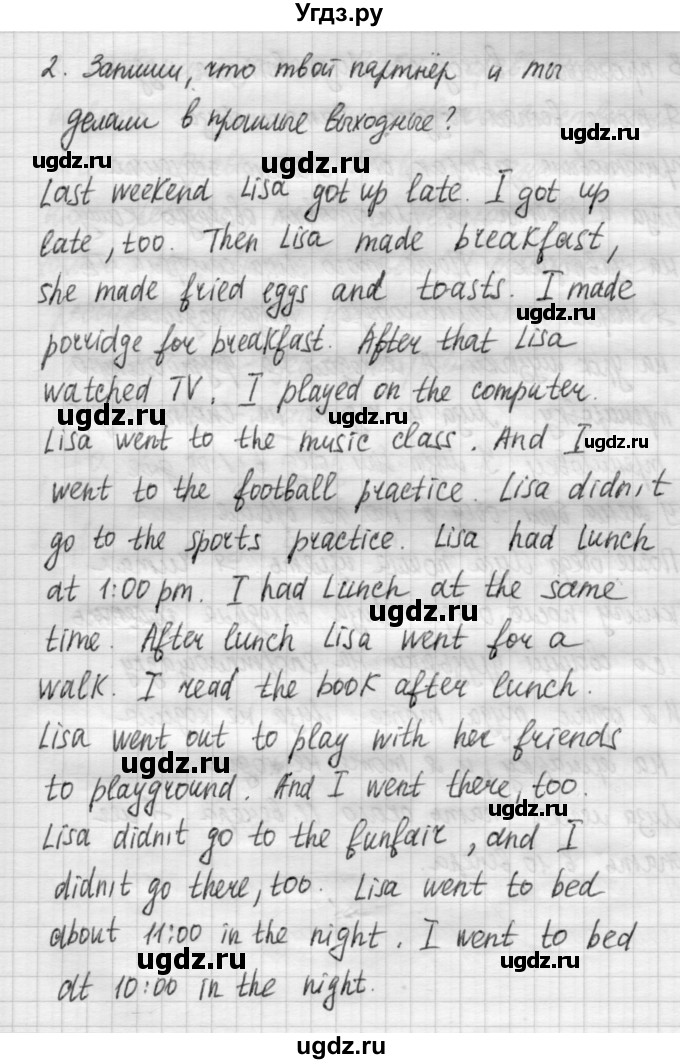 Угдз.ру
2. Запиши, что твой партнёр и ты
делали в прошлые выходные?
ugdz.ru
ugdz.ru
ugdz.ru
Last weekend Lisa got up late. I got up
late, too. Then Lisa made breakfast,
she made fried eggs and toasts. I made
ugdz.ru
porridge for breakfast. After that Lisa
watched TV. I played on the computer.
ugdz.ru
ugdz.ru
Lisa went to the music class. And I
ugdz.ru
went to the football practice. Lisa didn't
go to the sports practice. Lisa had lunch
at 1:00 pm. I had lunch at the same
ugdz.ru
time. After lunch Lisa went for a
ugdz.ru
walk. I read the book after lunch.
Lisa went out to play with her friends
ugdz.ru
to playground. And I went there, too.
ugdz.ru
Lisa didn't go to the funfair, and I
didn't go there, too. Lisa went to bed
about 11:00 in the night. I went to bed
ugdz.ru
ugdz.ru
at 10:00 in the night.
ugdz.ru